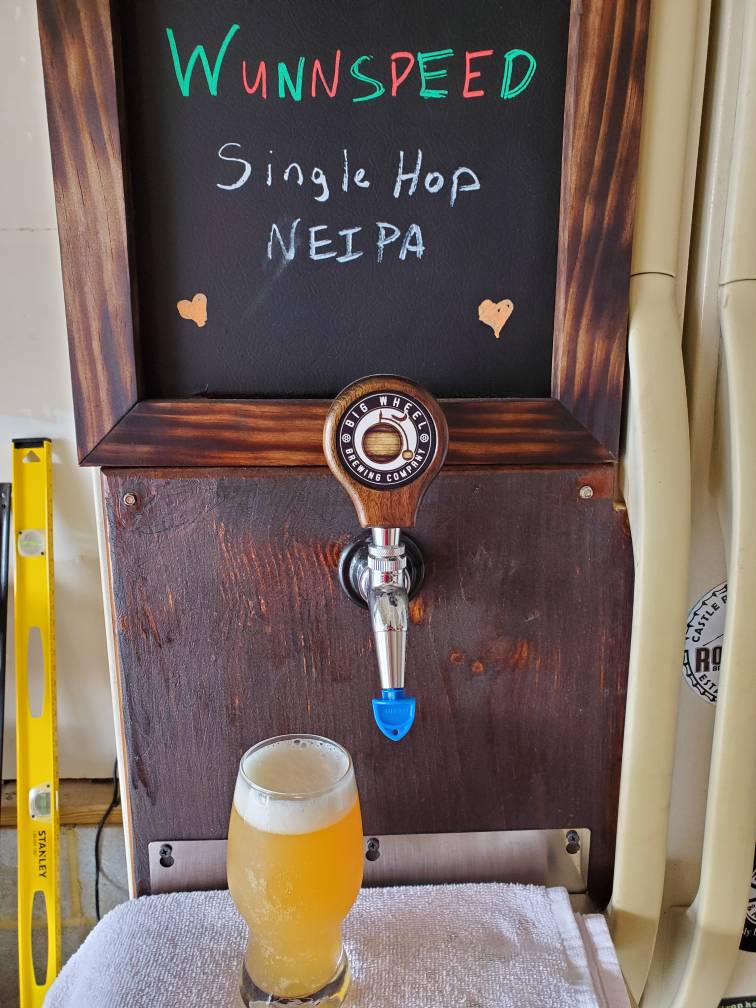 WUNNSPEED
Single Hop
NEIPA
BIG WHEEL
BREWING COMPANY
STANLEY
CASTLE
RO
EST